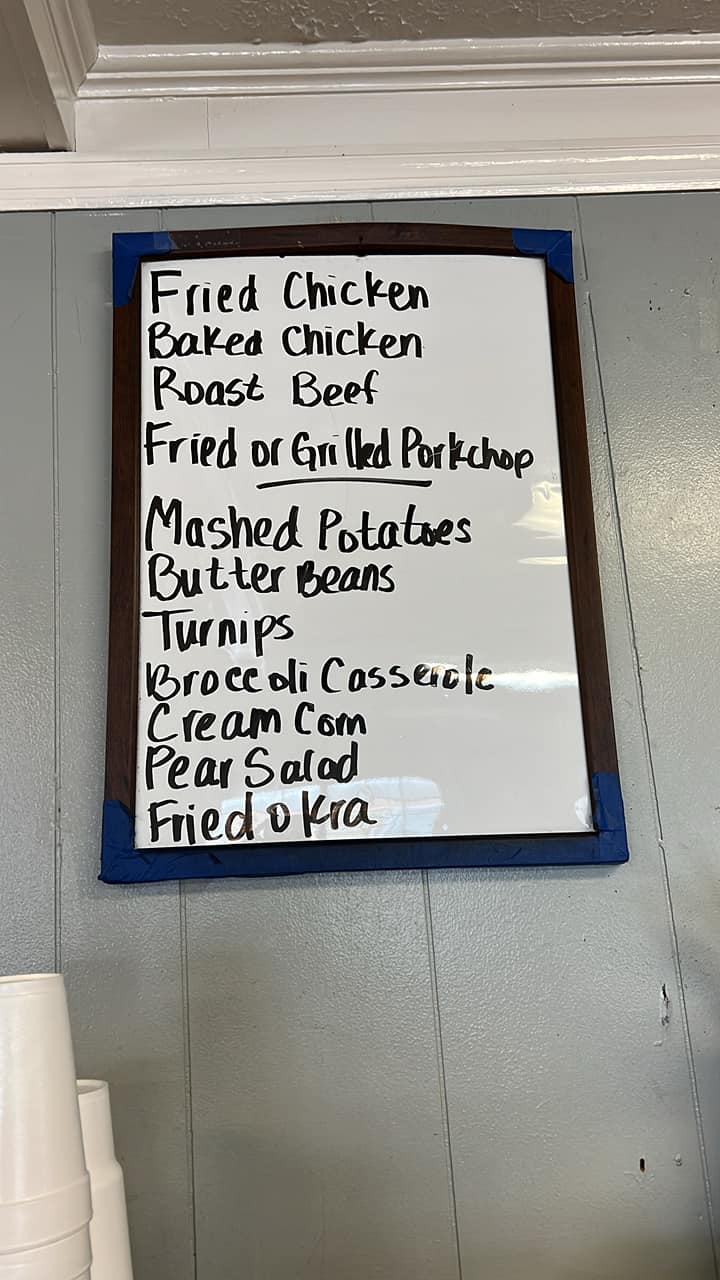 Fried Chicken
Baked Chicken
Roast Beef
Fried or Grilled Porkchop
Mashed Potatoes
Butter Beans
Turnips
Broccoli Casserole
Cream Corn
Pear Salad
Fried Okra